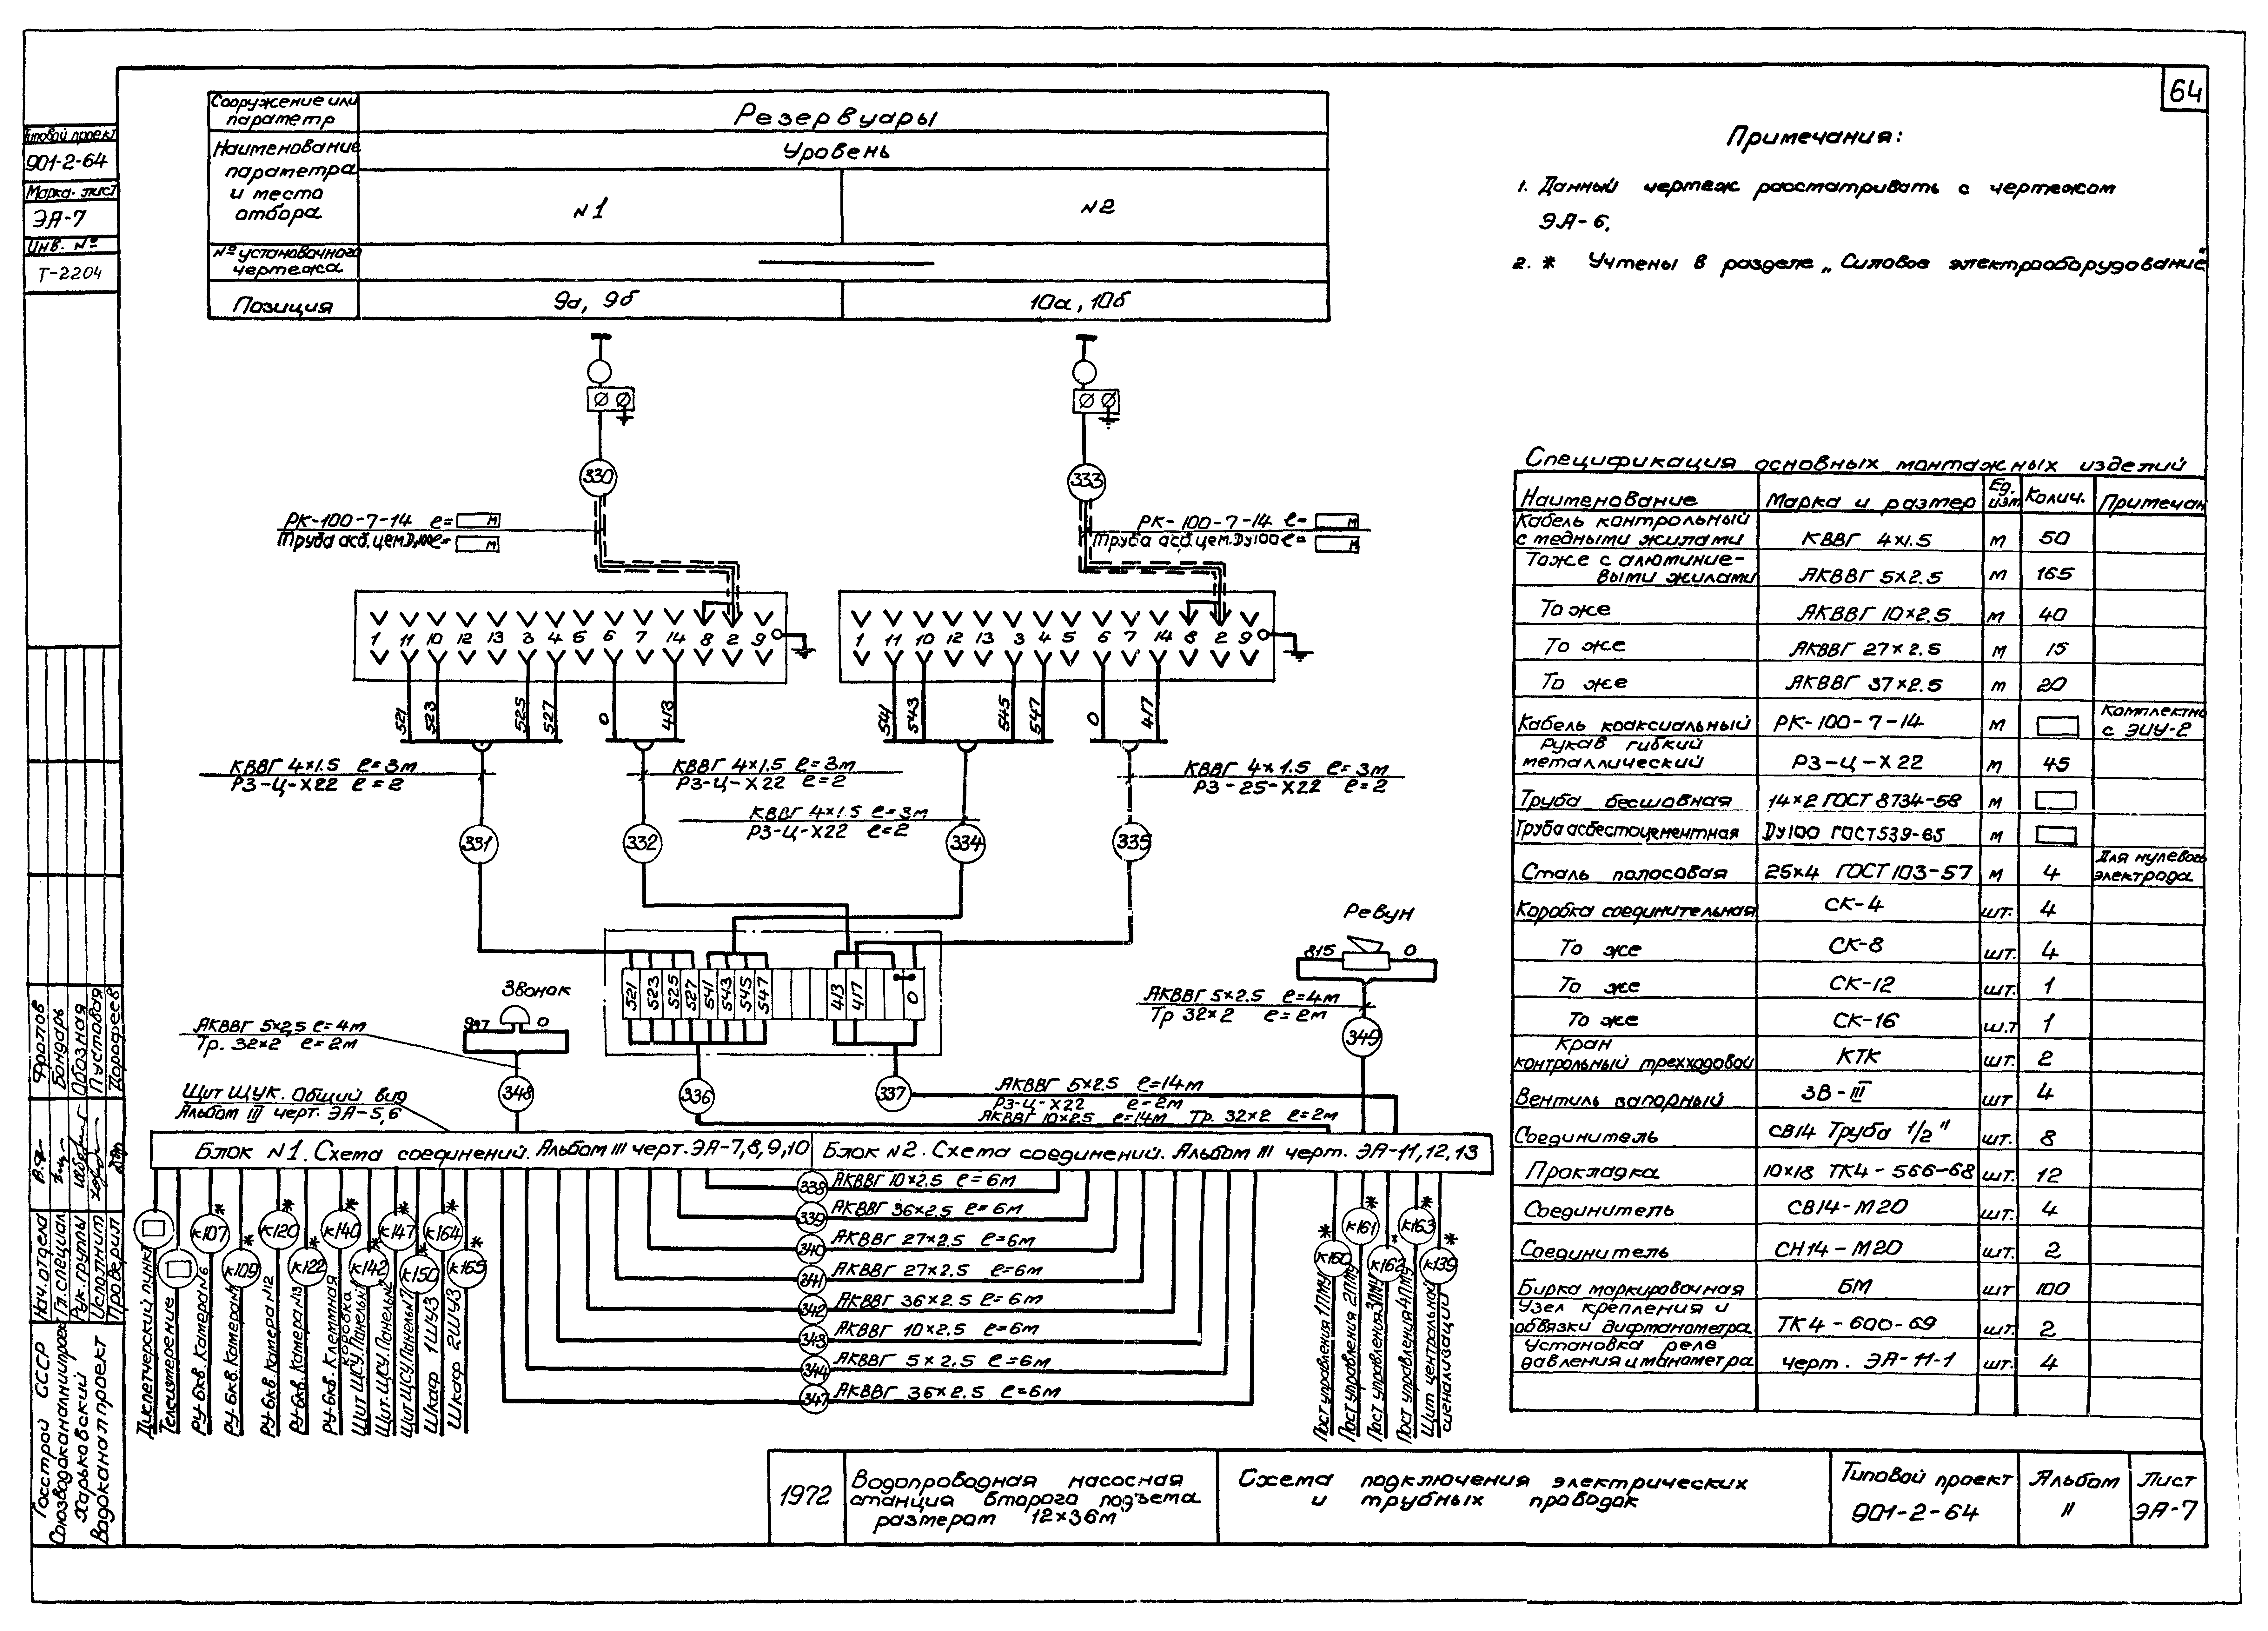 64
Типовой проект
901-2-64
Марка-лист
ЭА-7
Инв. №
Т-2204
Сооружение или параметр
Резервуары
Наименование параметра и место отбора
Уровень
№1
№2
№ установочного чертежа
Позиция
9а, 9б
10а, 10б
Примечания:
1. Данный чертеж рассматривать с чертежом
ЭА-6.
2. * Учтены в разделе „Силовое электрооборудование"
330
333
РК-100-7-14 ℓ= м
Труба асб.цем.Dу100 ℓ= м
РК-100-7-14 ℓ= м
Труба асб.цем.Dу100 ℓ= м
1 11 10 12 13 3 4 5 6 7 14 8 2 9
1 11 10 12 13 3 4 5 6 7 14 8 2 9
521 523 525 527 0 413
541 543 545 547 0 417
КВВГ 4х1.5 ℓ=3м
РЗ-Ц-Х22 ℓ=2
КВВГ 4х1.5 ℓ=3м
РЗ-Ц-Х22 ℓ=2
КВВГ 4х1.5 ℓ=3м
РЗ-Ц-Х22 ℓ=2
КВВГ 4х1.5 ℓ=3м
РЗ-25-Х22 ℓ=2
331
332
334
335
521 523 525 527 541 543 545 547 413 417 0
Звонок
0
АКВВГ 5х2,5 ℓ=4м
Тр. 32х2 ℓ=2м
348
336
337
Ревун
815 0
АКВВГ 5х2.5 ℓ=4м
Тр 32х2 ℓ=2м
349
АКВВГ 5х2.5 ℓ=14м
РЗ-Ц-Х22 ℓ=2м
АКВВГ 10х2.5 ℓ=14м Тр. 32х2 ℓ=2м
Щит ЩУК. Общий вид
Альбом III черт. ЭА-5,6
Блок №1. Схема соединений. Альбом III черт. ЭА-7,8,9,10
Блок №2. Схема соединений. Альбом III черт. ЭА-11,12,13
338 АКВВГ 10х2.5 ℓ=6м
339 АКВВГ 36х2.5 ℓ=6м
340 АКВВГ 27х2.5 ℓ=6м
341 АКВВГ 27х2.5 ℓ=6м
342 АКВВГ 36х2.5 ℓ=6м
343 АКВВГ 10х2.5 ℓ=6м
344 АКВВГ 5х2.5 ℓ=6м
347 АКВВГ 36х2.5 ℓ=6м
Диспетчерский пункт
Телеизмерение
к107* РУ-6кв. Камера №6
к109* РУ-6кв. Камера
к120* РУ-6кв. Камера №12
к122* РУ-6кв. Камера №13
к140* РУ-6кв. Клеммная коробка
к142* Щит ЩСУ. Панель №1
к147* Щит ЩСУ. Панель №2
к150* Щит ЩСУ. Панель
к164* Шкаф 1ШУЗ
к165* Шкаф 2ШУЗ
к160* Пост управления 1ПМУ
к161* Пост управления 2ПМУ
к162* Пост управления 3ПМУ
к163* Пост управления 4ПМУ
к139* Щит центральной сигнализации
Спецификация основных монтажных изделий
Наименование Марка и размер Ед. изм Колич. Примечан
Кабель контрольный с медными жилами КВВГ 4х1.5 м 50
То же с алюминиевыми жилами АКВВГ 5х2.5 м 165
То же АКВВГ 10х2.5 м 40
То же АКВВГ 27х2.5 м 15
То же АКВВГ 37х2.5 м 20
Кабель коаксиальный РК-100-7-14 м Комплектно с ЭИУ-2
Рукав гибкий металлический РЗ-Ц-Х22 м 45
Труба бесшовная 14х2 ГОСТ 8734-58 м
Труба асбестоцементная Dу100 ГОСТ539-65 м
Сталь полосовая 25х4 ГОСТ 103-57 м 4 Для нулевого электрода
Коробка соединительная СК-4 шт. 4
То же СК-8 шт. 4
То же СК-12 шт. 1
То же СК-16 ш.т 1
Кран контрольный трехходовой КТК шт. 2
Вентиль запорный ЗВ-III шт 4
Соединитель СВ14 Труба 1/2" шт. 8
Прокладка 10х18 ТК4-566-68 шт. 12
Соединитель СВ14-М20 шт. 4
Соединитель СН14-М20 шт. 2
Бирка маркировочная БМ шт 100
Узел крепления и обвязки дифманометра ТК4-600-69 шт. 2
Установка реле давления и манометра черт. ЭА-11-1 шт. 4
Нач.отдела
Гл.специал
Рук.группы
Исполнит
Проверил
Бондарь
Обозная
Пустовая
Дорофеев
Госстрой СССР
Союзводоканалниипроект
Харьковский
Водоканалпроект
1972
Водопроводная насосная
станция второго подъема
размером 12х36м
Схема подключения электрических
и трубных проводок
Типовой проект
901-2-64
Альбом
II
Лист
ЭА-7